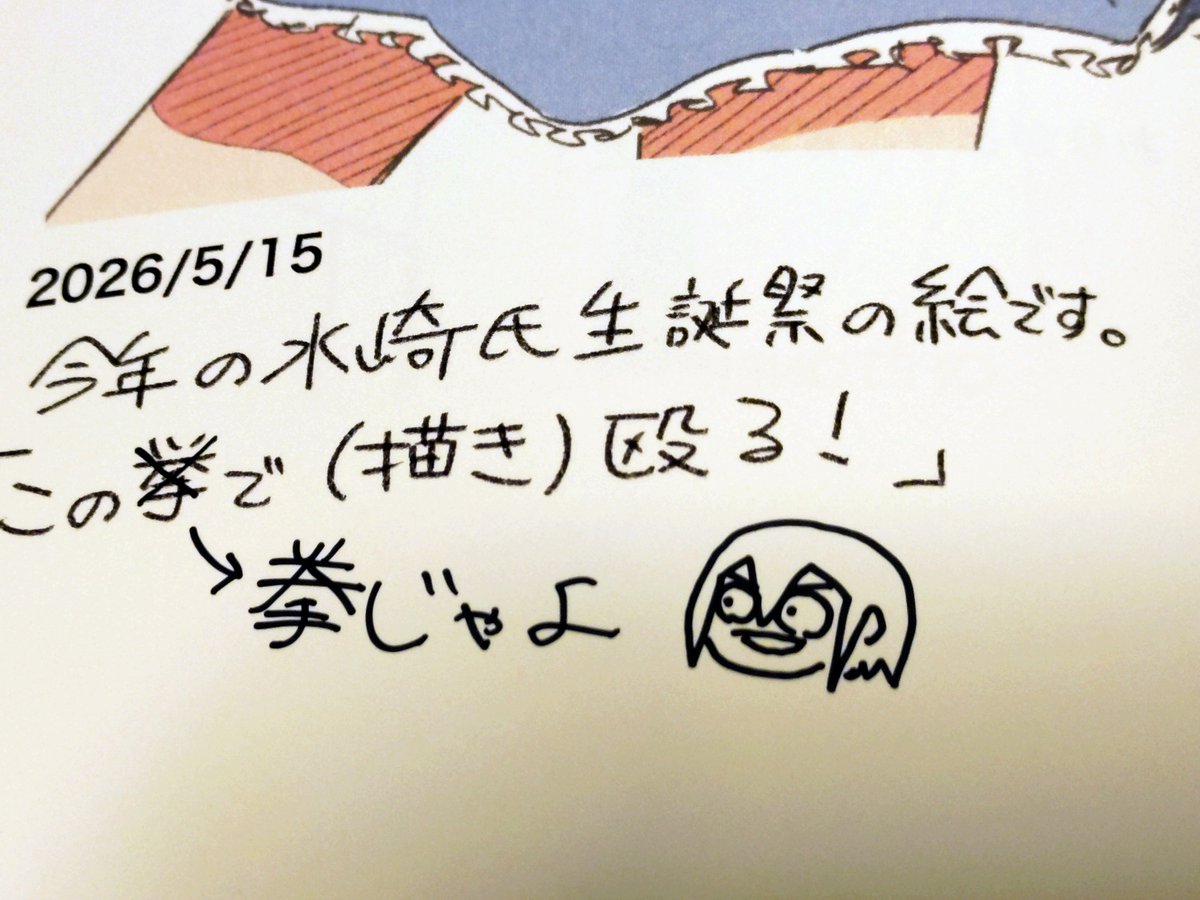 2026/5/15
今年の水崎氏生誕祭の絵です。
「この挙で(描き)殴る!」
→拳じゃよ